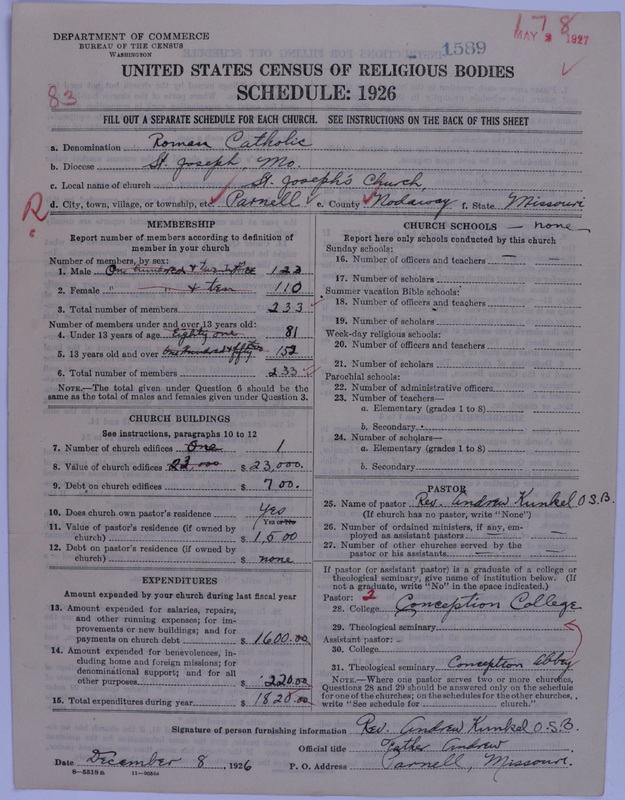 DEPARTMENT OF COMMERCE
BUREAU OF THE CENSUS
WASHINGTON
178
MAY 2 1927
1589
83
UNITED STATES CENSUS OF RELIGIOUS BODIES
SCHEDULE: 1926
FILL OUT A SEPARATE SCHEDULE FOR EACH CHURCH. SEE INSTRUCTIONS ON THE BACK OF THIS SHEET
a. Denomination Roman Catholic
b. Diocese St. Joseph, Mo.
c. Local name of church St. Joseph's Church,
R d. City, town, village, or township, etc. Parnell e. County Nodaway f. State Missouri
MEMBERSHIP
Report number of members according to definition of
member in your church
Number of members, by sex:
1. Male One hundred & 123
2. Female " " & ten 110
3. Total number of members 233
Number of members under and over 13 years old:
4. Under 13 years of age Eighty one 81
5. 13 years old and over One hundred & fifty 152
6. Total number of members 233
NOTE.—The total given under Question 6 should be the
same as the total of males and females given under Question 3.
CHURCH BUILDINGS
See instructions, paragraphs 10 to 12
7. Number of church edifices One 1
8. Value of church edifices 23,000 $ 23,000.
9. Debt on church edifices $ 700.
10. Does church own pastor's residence Yes
Yes or No
11. Value of pastor's residence (if owned by
church) $ 1,500
12. Debt on pastor's residence (if owned by
church) $ none
EXPENDITURES
Amount expended by your church during last fiscal year
13. Amount expended for salaries, repairs,
and other running expenses; for im-
provements or new buildings; and for
payments on church debt $ 1600.00
14. Amount expended for benevolences, in-
cluding home and foreign missions; for
denominational support; and for all
other purposes $ 220.00
15. Total expenditures during year $ 1820.00
CHURCH SCHOOLS — none
Report here only schools conducted by this church
Sunday schools:
16. Number of officers and teachers
17. Number of scholars
Summer vacation Bible schools:
18. Number of officers and teachers
19. Number of scholars
Week-day religious schools:
20. Number of officers and teachers
21. Number of scholars
Parochial schools:
22. Number of administrative officers
23. Number of teachers—
a. Elementary (grades 1 to 8)
b. Secondary
24. Number of scholars—
a. Elementary (grades 1 to 8)
b. Secondary
PASTOR
25. Name of pastor Rev. Andrew Kunkel O.S.B.
(If church has no pastor, write "None")
26. Number of ordained ministers, if any, em-
ployed as assistant pastors —
27. Number of other churches served by the
pastor or his assistants —
If pastor (or assistant pastor) is a graduate of a college or
theological seminary, give name of institution below. (If
not a graduate, write "No" in the space indicated.)
Pastor: 2
28. College Conception College
29. Theological seminary
Assistant pastor:
30. College
31. Theological seminary Conception Abbey
NOTE.—Where one pastor serves two or more churches,
Questions 28 and 29 should be answered only on the schedule
for one of the churches; on the schedules for the other churches,
write "See schedule for church."
Signature of person furnishing information Rev. Andrew Kunkel O.S.B.
Official title Father Andrew
Date December 8, 1926 P. O. Address Parnell, Missouri.
8—5519a 11—9034a